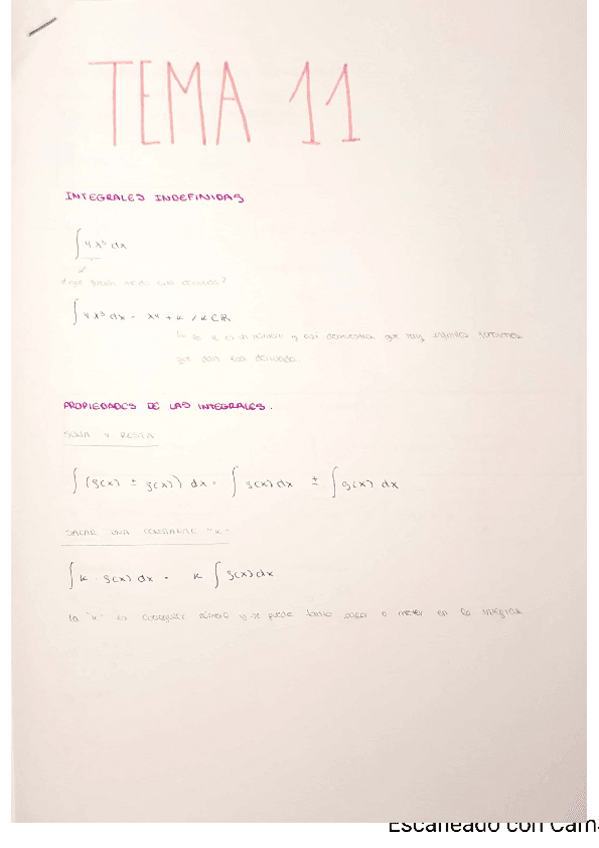 TEMA 11
INTEGRALES INDEFINIDAS
∫4x³ dx
¿que función me da esta derivada?
∫4x³ dx = x⁴ + K / K∈R
La K es un número y así demuestra que hay infinitas funciones
que dan esa derivada.
PROPIEDADES DE LAS INTEGRALES.
SUMA Y RESTA
∫(f(x) ± g(x)) dx = ∫f(x) dx ± ∫g(x) dx
SACAR UNA CONSTANTE "K"
∫K · f(x) dx = K ∫f(x) dx
la "K" es cualquier número y se puede tanto sacar o meter en la integral
Escaneado con Cam